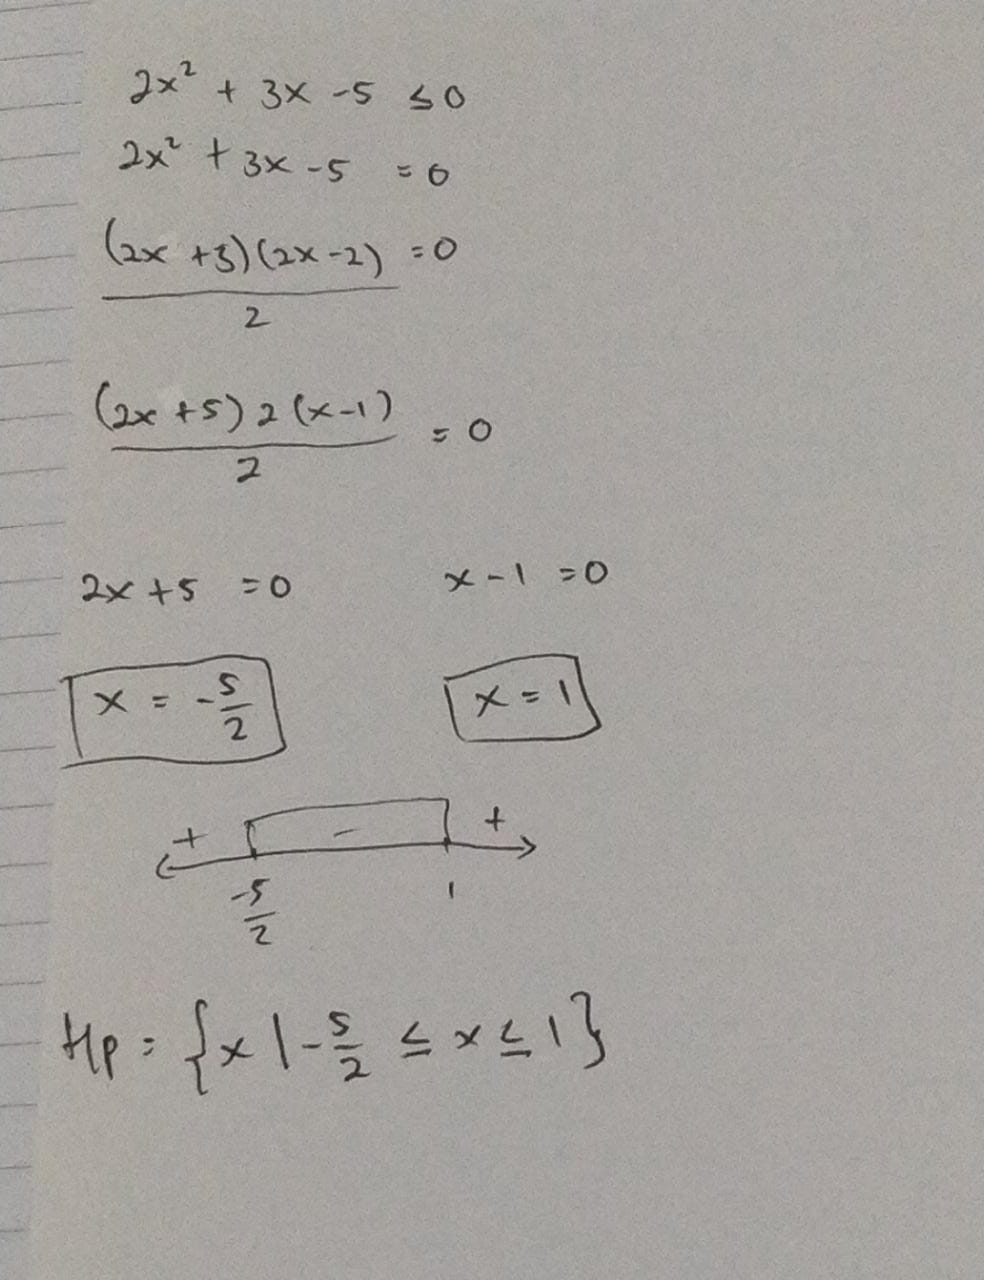 2x² + 3x - 5 ≤ 0
2x² + 3x - 5 = 0
(2x + 3)(2x - 2) = 0
2
(2x + 5) 2 (x - 1) = 0
2
2x + 5 = 0 x - 1 = 0
x = -5/2 x = 1
+ - +
-5/2 1
Hp = {x | -5/2 ≤ x ≤ 1}